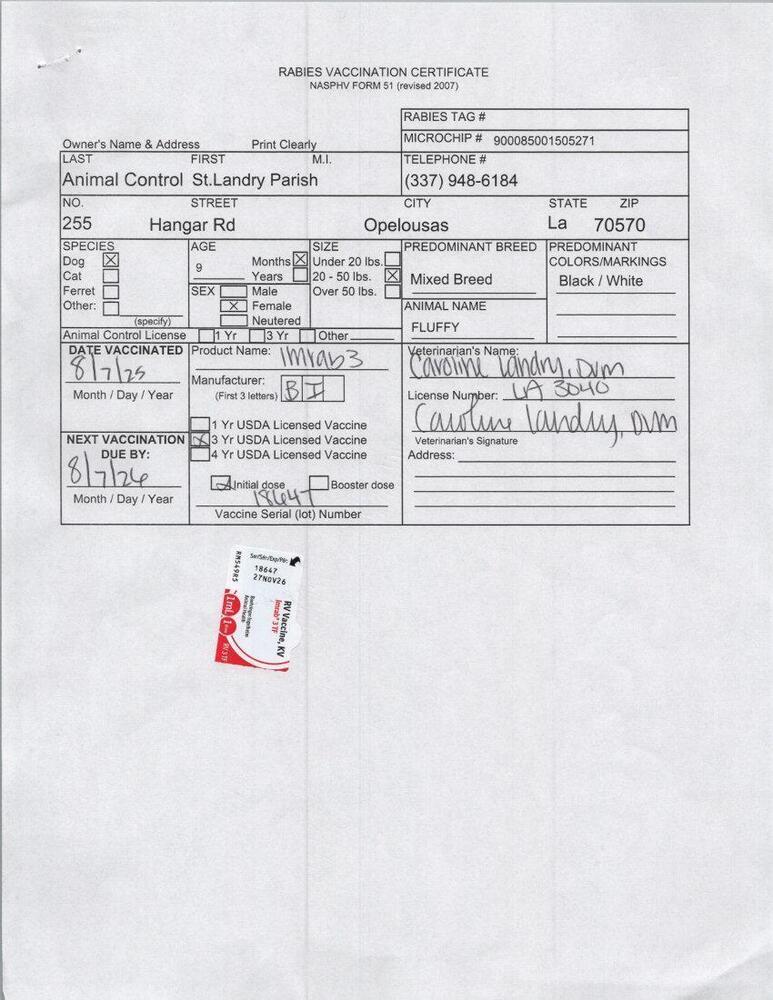 RABIES VACCINATION CERTIFICATE
NASPHV FORM 51 (revised 2007)
RABIES TAG #
Owner's Name & Address Print Clearly
MICROCHIP # 900085001505271
LAST FIRST M.I. TELEPHONE #
Animal Control St.Landry Parish (337) 948-6184
NO. STREET CITY STATE ZIP
255 Hangar Rd Opelousas La 70570
SPECIES AGE SIZE PREDOMINANT BREED PREDOMINANT
COLORS/MARKINGS
Dog Months Under 20 lbs.
9
Cat Years 20 - 50 lbs. Mixed Breed Black / White
Ferret SEX Male Over 50 lbs.
Other: Female ANIMAL NAME
(specify) Neutered FLUFFY
Animal Control License 1 Yr 3 Yr Other
DATE VACCINATED Product Name: Imrab3 Veterinarian's Name:
8/7/25 Caroline Landry, DVM
Month / Day / Year Manufacturer: BI
(First 3 letters) License Number: LA 3040
1 Yr USDA Licensed Vaccine Caroline Landry, DVM
NEXT VACCINATION 3 Yr USDA Licensed Vaccine Veterinarian's Signature
DUE BY: 4 Yr USDA Licensed Vaccine Address:
8/7/26
Initial dose Booster dose
Month / Day / Year 18647
Vaccine Serial (lot) Number
18647
27NOV26
RV Vaccine, KV
Imrab® 3 TF
Boehringer Ingelheim
Animal Health
1mL